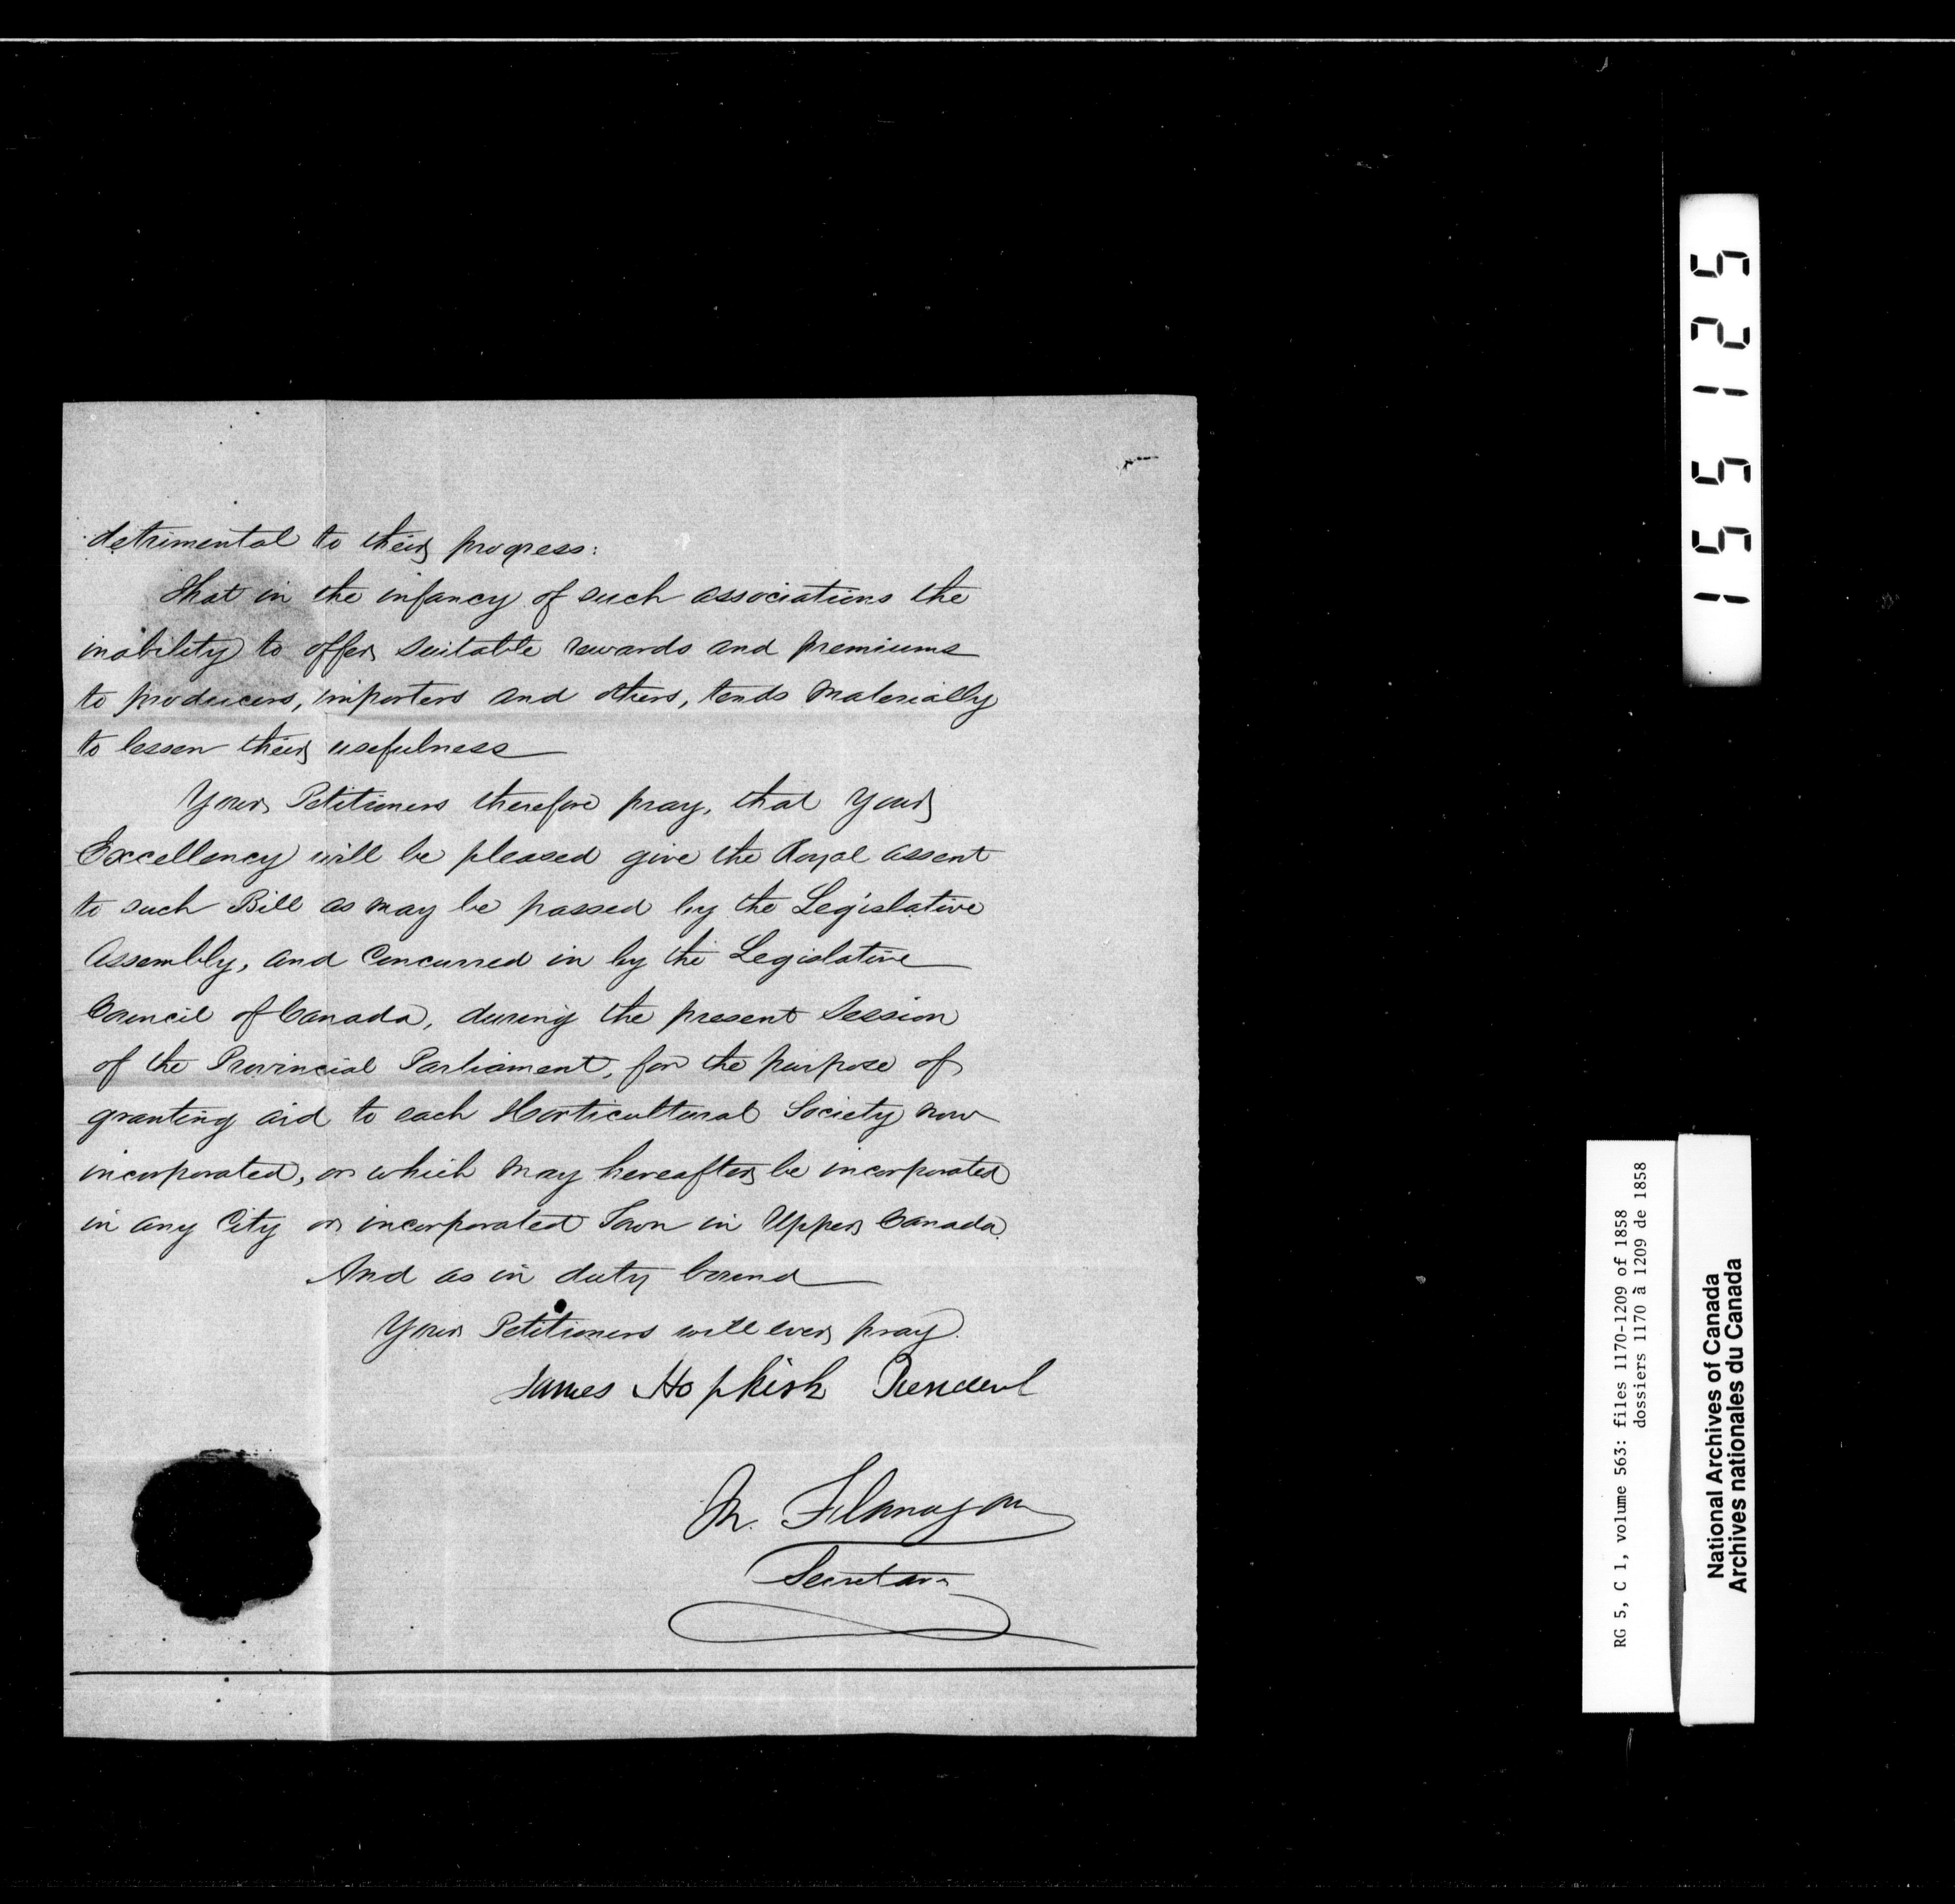 detrimental to their progress:
That in the infancy of such associations the
inability to offer suitable rewards and premiums
to producers, importers and others, tends materially
to lessen their usefulness
Your Petitioners therefore pray, that your
Excellency will be pleased give the Royal assent
to such Bill as may be passed by the Legislative
Assembly, and concurred in by the Legislative
Council of Canada, during the present Session
of the Provincial Parliament, for the purpose of
granting aid to each Horticultural Society now
incorporated, or which may hereafter be incorporated
in any City or incorporated Town in Upper Canada.
And as in duty bound
Your Petitioners will ever pray.
James Hopkirk President
M. Flanagan
Secretary
155125
RG 5, C 1, volume 563: files 1170-1209 of 1858
dossiers 1170 à 1209 de 1858
National Archives of Canada
Archives nationales du Canada